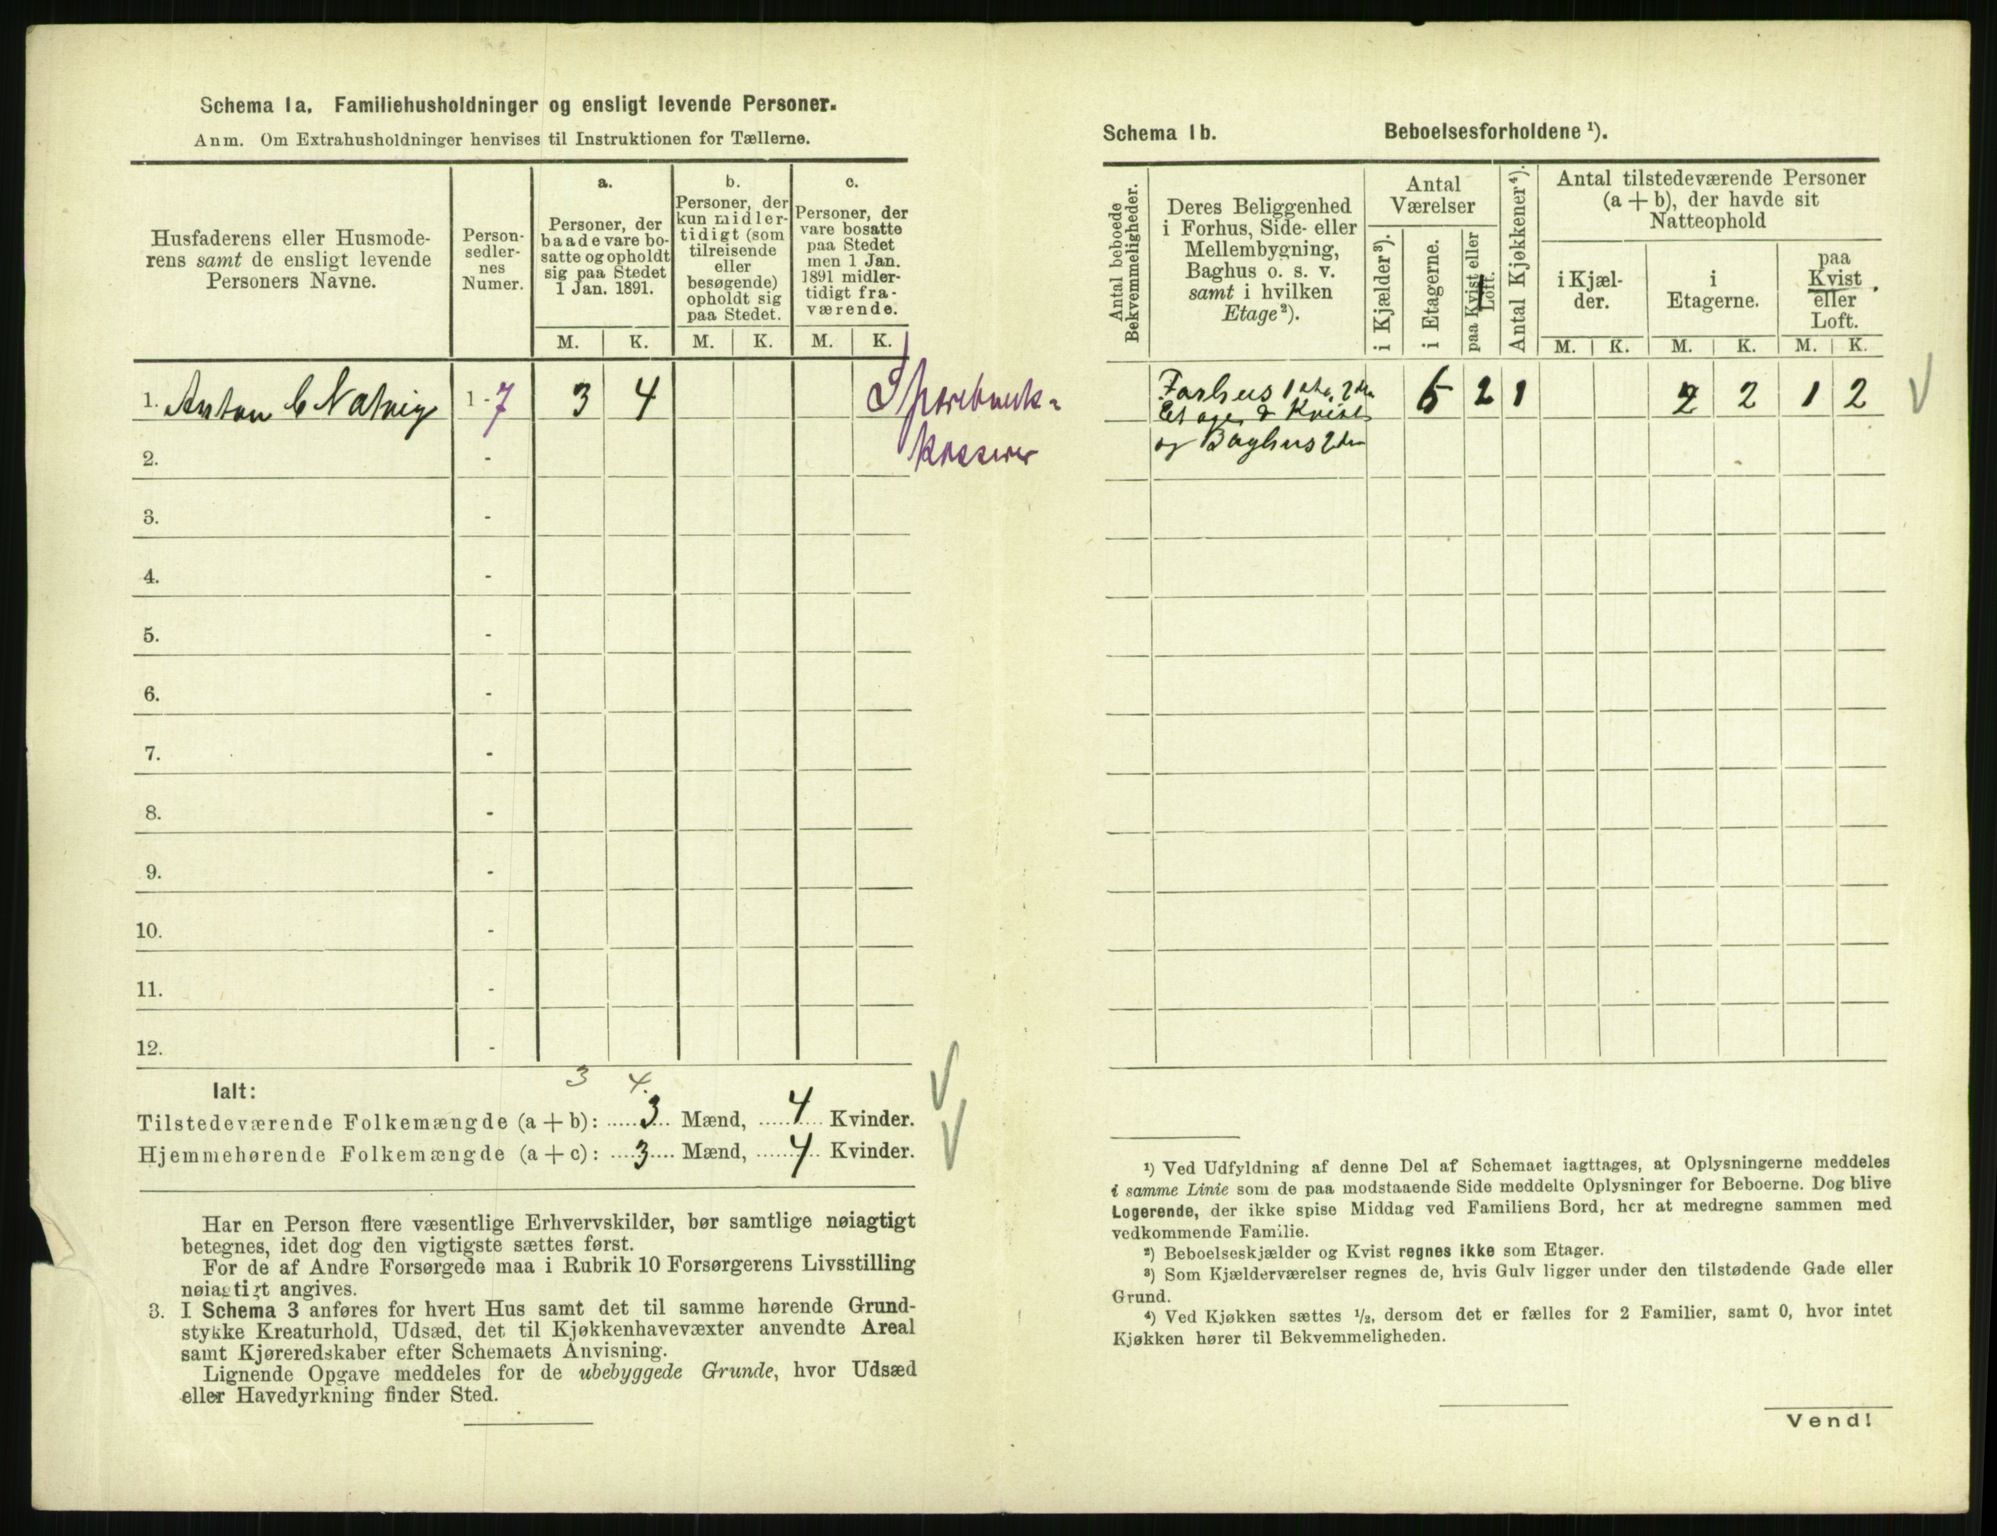 Schema 1a. Familiehusholdninger og ensligt levende Personer.
Anm. Om Extrahusholdninger henvises til Instruktionen for Tællerne.
Husfaderens eller Husmode-
rens samt de ensligt levende
Personers Navne.
Person-
sedler-
nes
Numer.
a.
Personer, der
baade vare bo-
satte og opholdt
sig paa Stedet
1 Jan. 1891.
b.
Personer, der
kun midler-
tidigt (som
tilreisende
eller
besøgende)
opholdt sig
paa Stedet.
c.
Personer, der
vare bosatte
paa Stedet
men 1 Jan.
1891 midler-
tidigt fra-
værende.
M. K. M. K. M. K.
1. Anton C Natvig 1-7 3 4 Sparebank-
kasserer
2. -
3. -
4. -
5. -
6. -
7. -
8. -
9. -
10. -
11. -
12. -
3 4.
Ialt:
Tilstedeværende Folkemængde (a + b): 3 Mænd, 4 Kvinder.
Hjemmehørende Folkemængde (a + c): 3 Mænd, 4 Kvinder.
Har en Person flere væsentlige Erhvervskilder, bør samtlige nøiagtigt
betegnes, idet dog den vigtigste sættes først.
For de af Andre Forsørgede maa i Rubrik 10 Forsørgerens Livsstilling
nøiagtigt angives.
3. I Schema 3 anføres for hvert Hus samt det til samme hørende Grund-
stykke Kreaturhold, Udsæd, det til Kjøkkenhavevæxter anvendte Areal
samt Kjøreredskaber efter Schemaets Anvisning.
Lignende Opgave meddeles for de ubebyggede Grunde, hvor Udsæd
eller Havedyrkning finder Sted.
Schema 1b. Beboelsesforholdene ¹).
Antal beboede
Bekvemmeligheder.
Deres Beliggenhed
i Forhus, Side- eller
Mellembygning,
Baghus o. s. v.
samt i hvilken
Etage²).
Antal
Værelser
i Kjælder³).
i Etagerne.
paa Kvist eller
Loft.
Antal Kjøkkener⁴).
Antal tilstedeværende Personer
(a + b), der havde sit
Natteophold
i Kjæl-
der.
i
Etagerne.
paa
Kvist
eller
Loft.
M. K. M. K. M. K.
Forhus 1ste, 2den 6 2 1 2 2 1 2
Etage & Kvist
og Baghus 2den
¹) Ved Udfyldning af denne Del af Schemaet iagttages, at Oplysningerne meddeles
i samme Linie som de paa modstaaende Side meddelte Oplysninger for Beboerne. Dog blive
Logerende, der ikke spise Middag ved Familiens Bord, her at medregne sammen med
vedkommende Familie.
²) Beboelseskjælder og Kvist regnes ikke som Etager.
³) Som Kjælderværelser regnes de, hvis Gulv ligger under den tilstødende Gade eller
Grund.
⁴) Ved Kjøkken sættes ½, dersom det er fælles for 2 Familier, samt 0, hvor intet
Kjøkken hører til Bekvemmeligheden.
Vend!